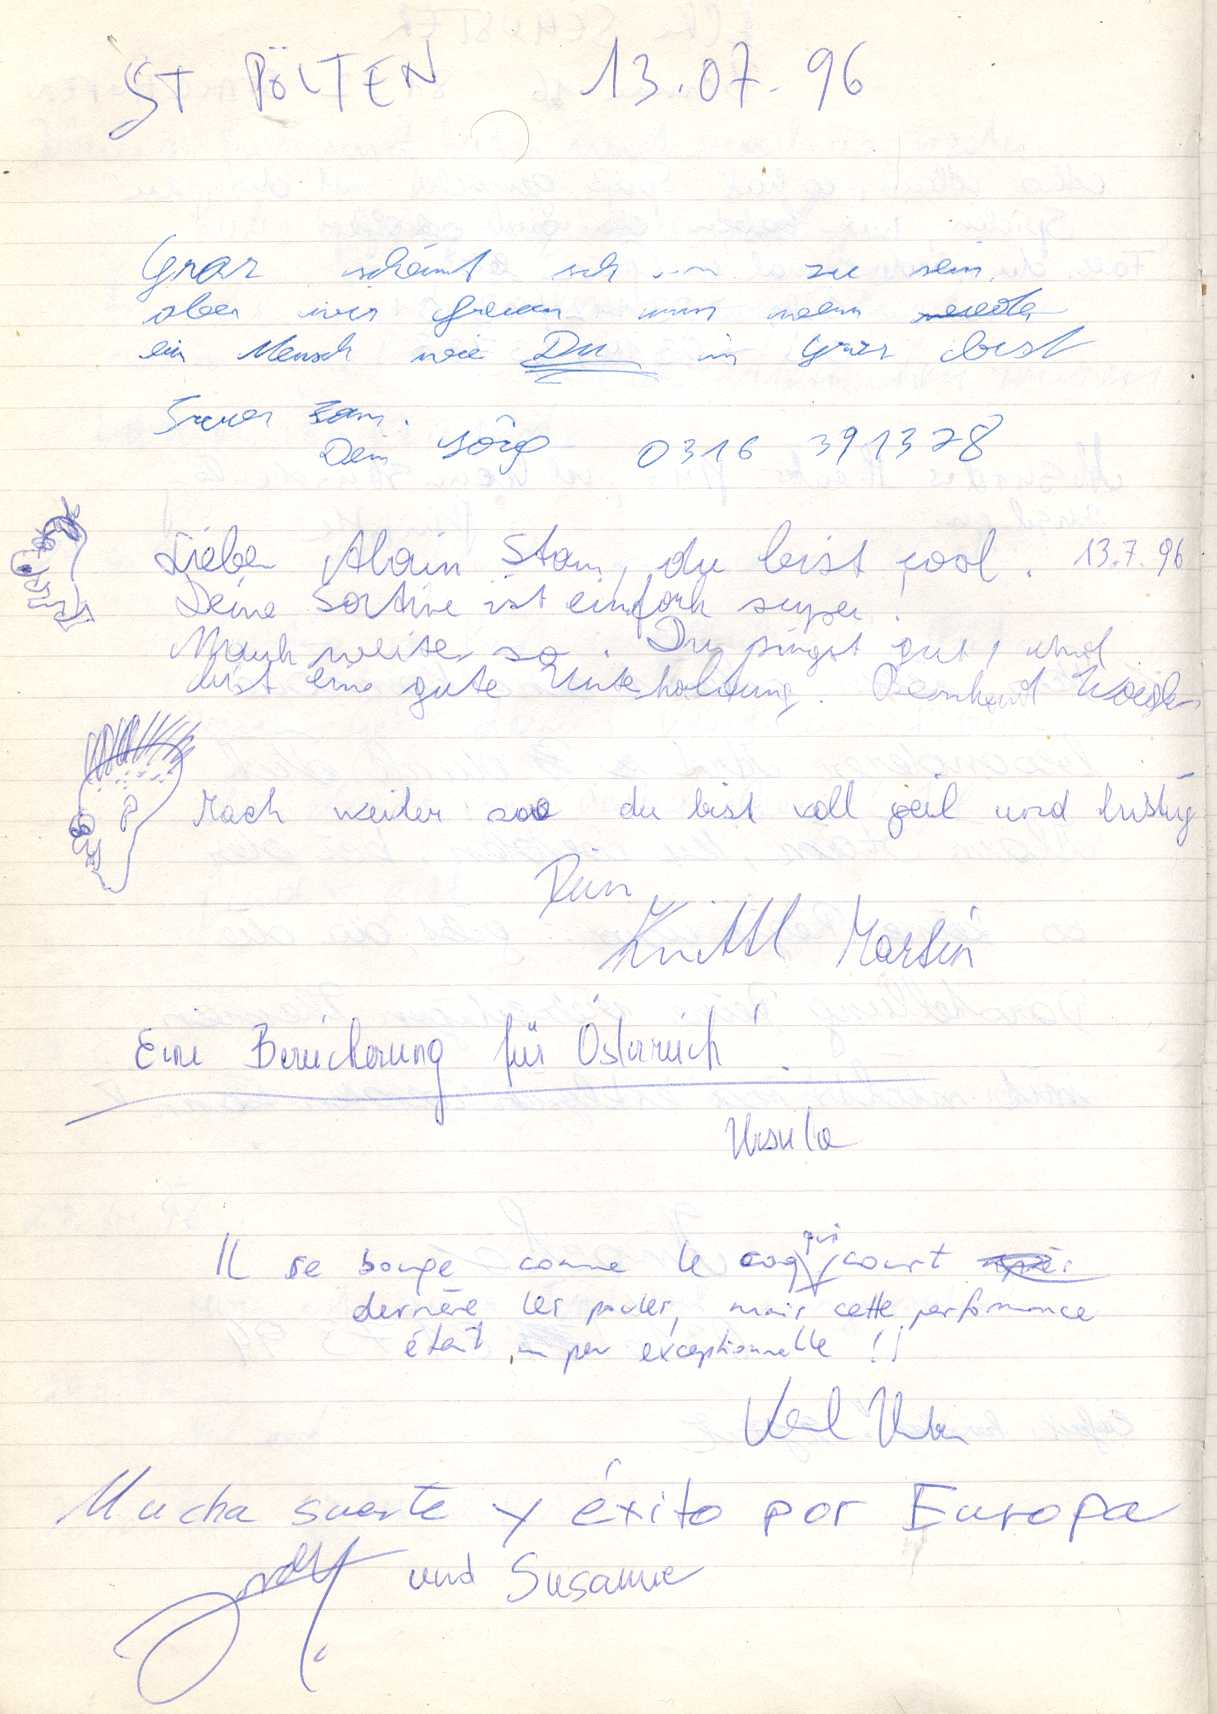 ST PÖLTEN 13.07.96
Graz scheint sich zu sein,
aber wir freuen uns wenn
ein Mensch wie Du in Graz bist
Dein Jörg 0316 391378
Lieber Alain Stam, du bist cool. 13.7.96
Deine Sortive ist einfach super.
Mach weiter so. Du singst gut, und
bist eine gute Unterholdung. Bernhard
Mach weiter soo du bist voll geil und lustig
Dein
Knittl Martin
Eine Bereicherung für Österreich!
Ursula
Il se bouge comme le coq qui court
derrière les poules, mais cette performance
était un peu exceptionnelle !!
Karl
Mucha suerte y éxito por Europa
und Susanne